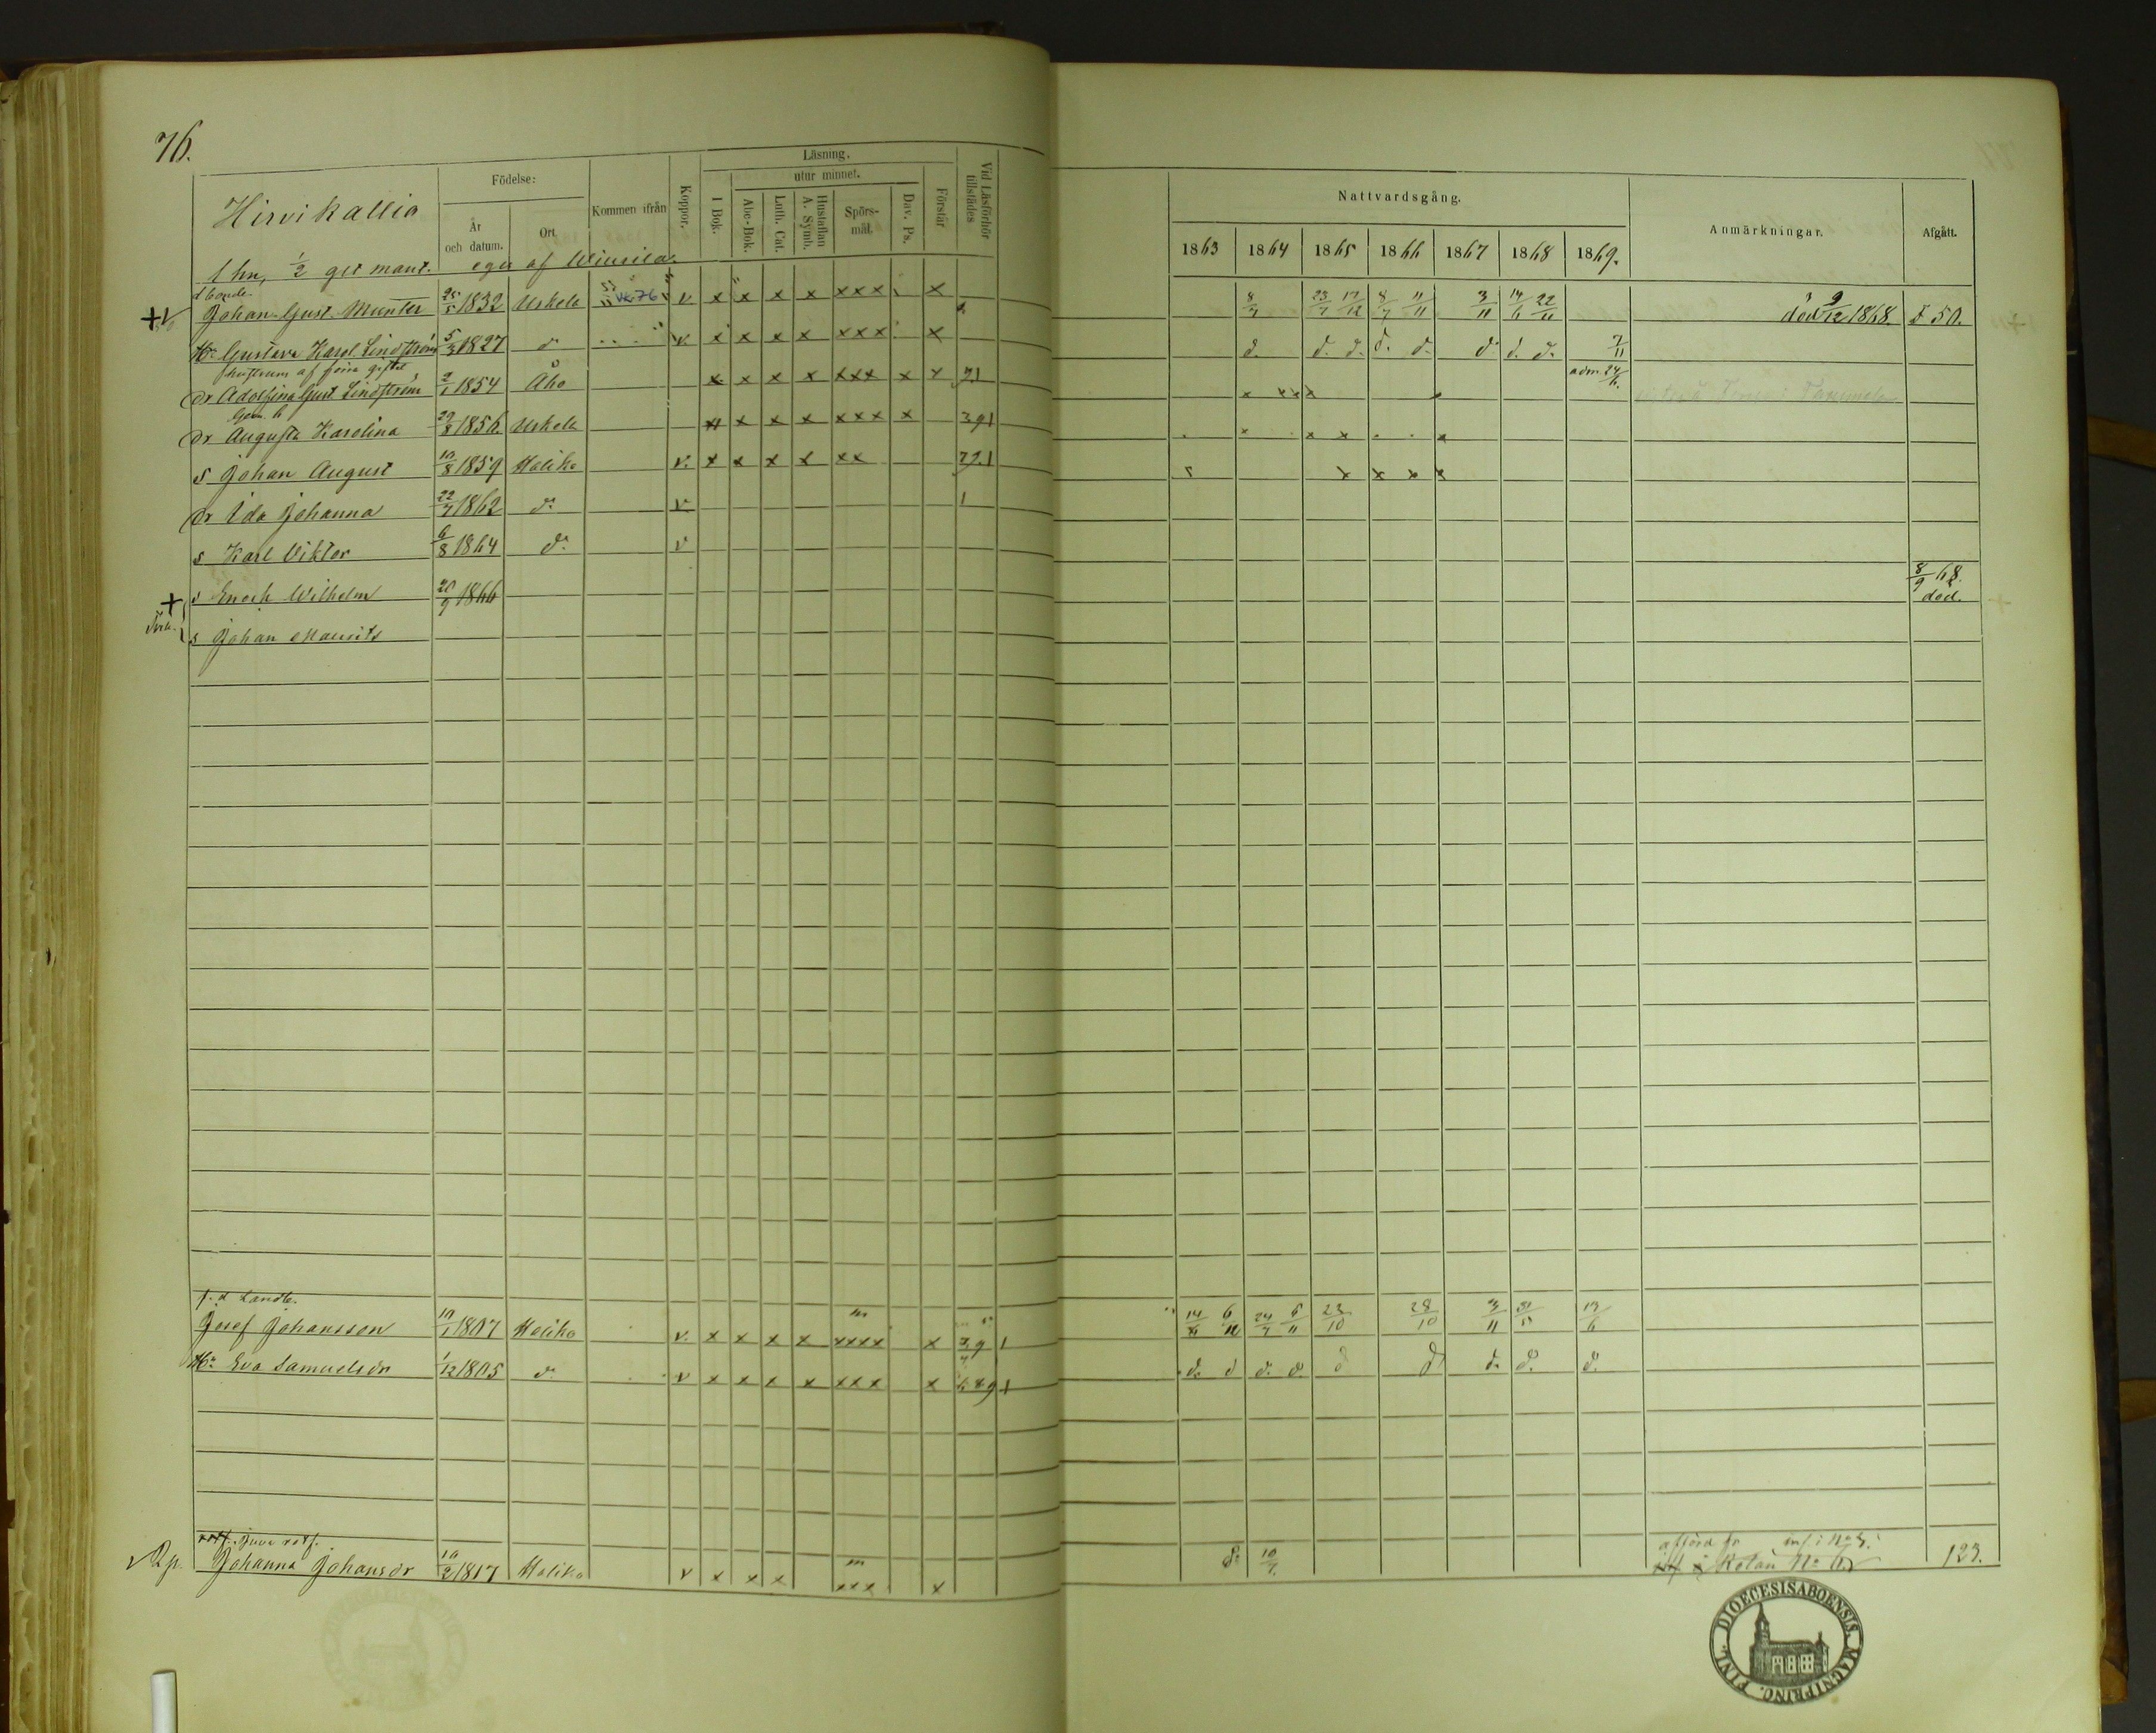 76.
Hirvikallio
Födelse:
År och datum.
Ort
Kommen ifrån
Koppor.
Läsning.
I Bok.
utur minnet.
Abc-Bok.
Luth. Cat.
Hustaflan A. Symb.
Spörs-mål.
Dav. Ps.
Förstår
Vid Läsförhör tillstädes
Nattvardsgång.
1863 1864 1865 1866 1867 1868 1869.
Anmärkningar.
Afgått.
1 hn, 1/2 get mant. eges af
Johan Gust. Munter 25/5 1832 Uskela v x x x x xxx x 8/7 23/7 17/12 8/7 11/11 3/11 14/6 22/11 död 9/12 1868. 50.
Hu Gustava Karol. Lindström 5/3 1827 do v x x x x xxx x d. d. d. d. d. d. d. d. 7/11
dr Adolfina Gust. Lindström 2/1 1854 Åbo x x x x xxx x x 71 x x x x adm. 24/6.
dr Augusta Karolina 29/8 1856 Uskela x x x xxx x 391 x x x x
s Johan August 10/8 1859 Haliko v. x x x x xx x x x x
dr Ida Johanna 22/7 1862 do v 1
s Karl Viktor 6/8 1864 do v
s Enoch Wilhelm 20/9 1866 8/9 68. död.
s Johan Maurits
f. d Landb.
Josef Johansson 10/1 1807 Haliko v. x x x x xxxx x 39 1 24/7 23/10 28/10 3/11 31/5 13/6
Hu Eva Samuelsdr 1/12 1805 do v x x x x xxx x d. d d. d. d d d. d. d.
Johanna Johansdr 10/2 1817 Haliko v x x x xxx x do 10/7 Kotan No 6. 123.
DIOECESIS ABOENSIS. MAGNI PRINC. FINL.